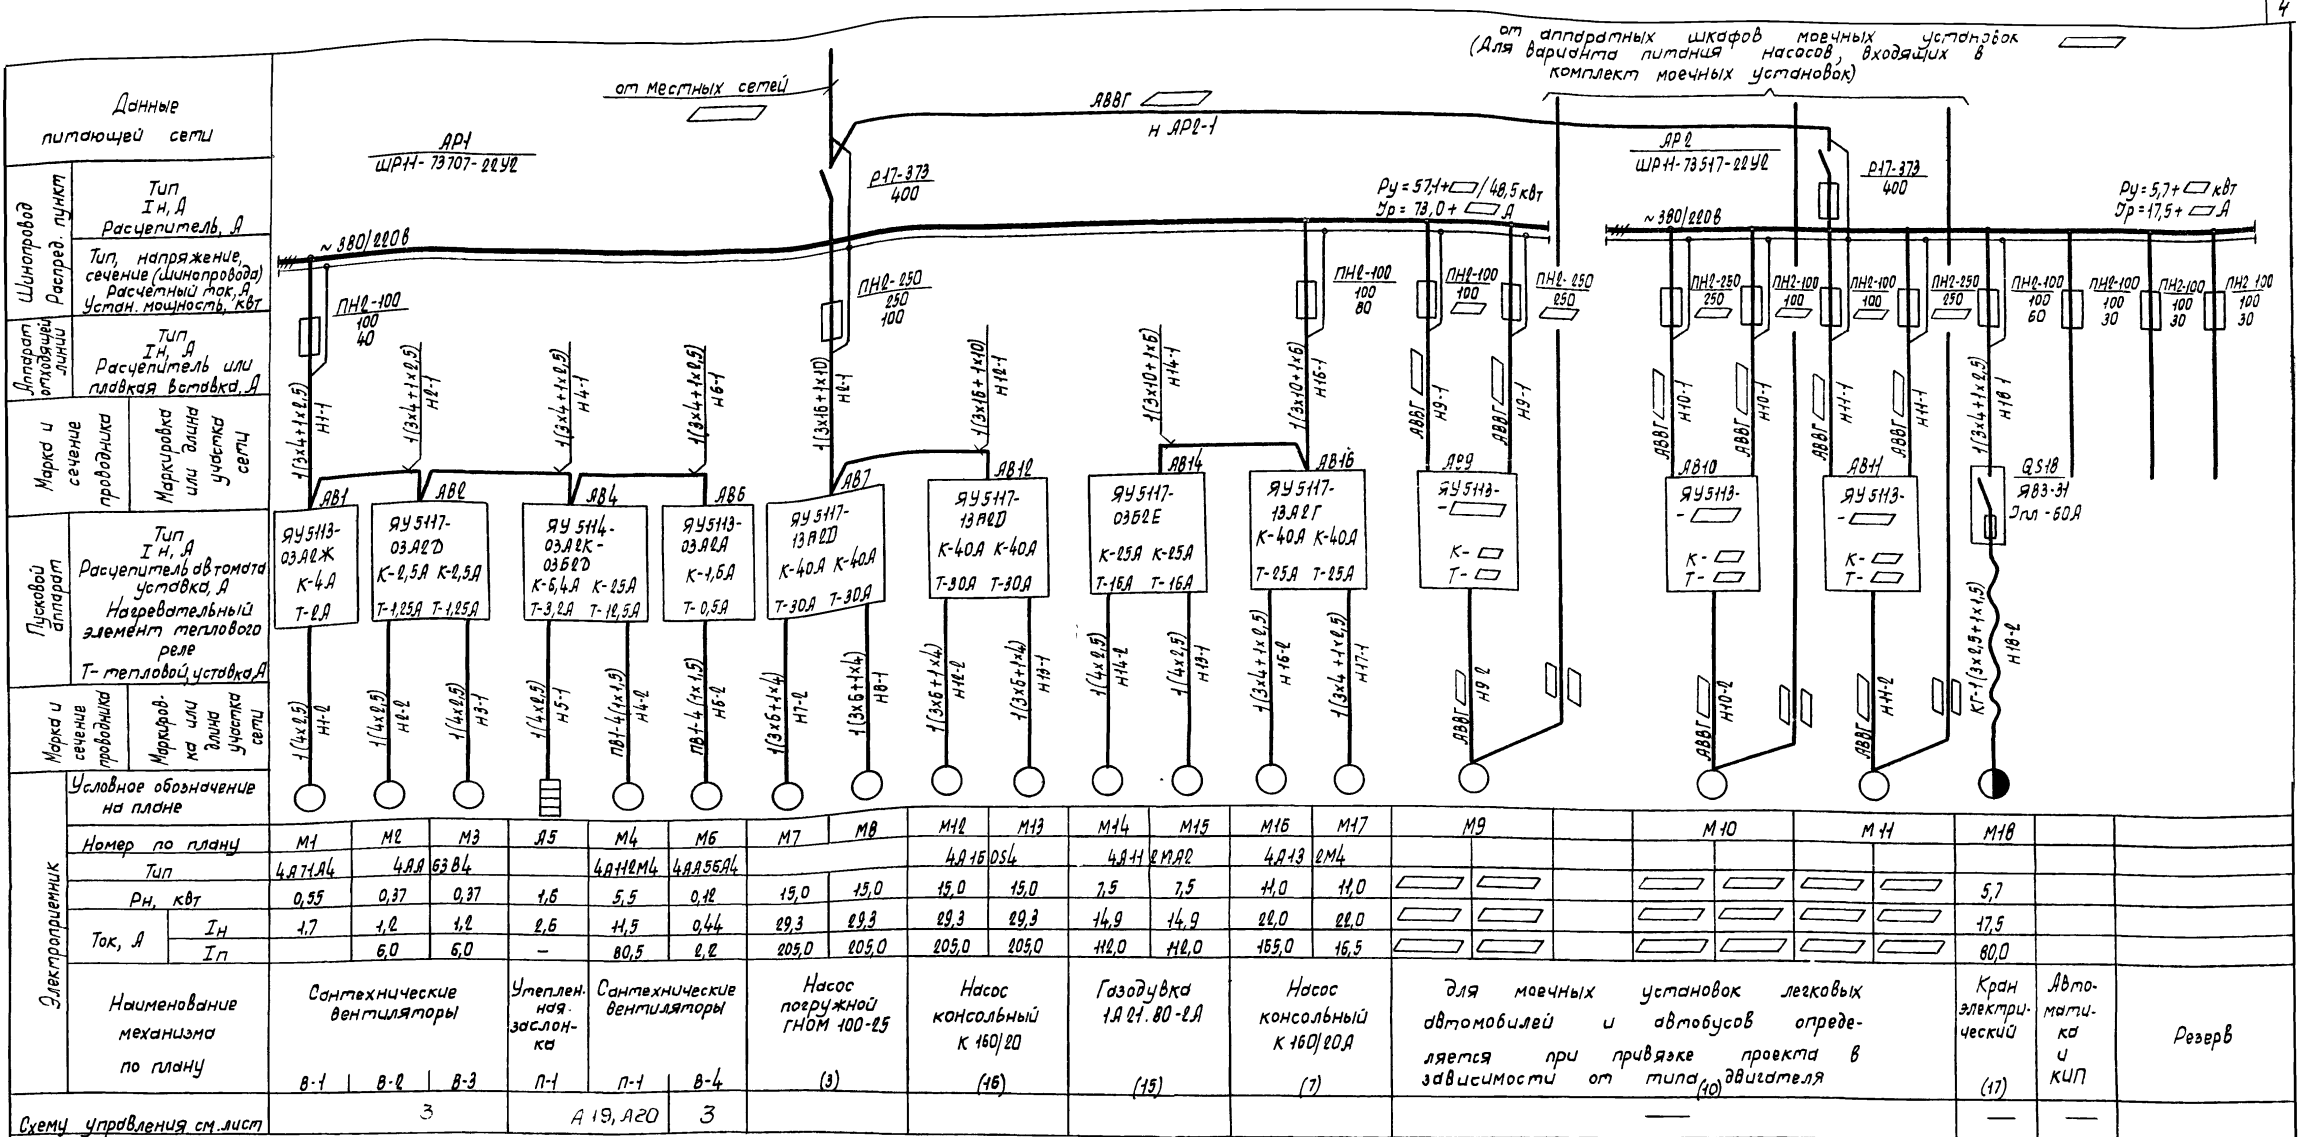 4
от аппаратных шкафов моечных установок
(Для варианта питания насосов, входящих в
комплект моечных установок)
от местных сетей
АВВГ
Н АР2-1
АР1
ШР11-73707-22У2
Р17-373
400
АР2
ШР11-73517-22У2
Р17-373
400
Ру=57,1+ /48,5 кВт
Iр=73,0+ А
Ру=5,7+ кВт
Iр=17,5+ А
~380/220В
~380/220В
Данные
питающей сети
Шинопровод
Распред. пункт
Тип
Iн, А
Расцепитель, А
Тип, напряжение,
сечение (шинопровода)
Расчётный ток, А
Устан. мощность, кВт
Аппарат
отходящей
линии
Тип
Iн, А
Расцепитель или
плавкая вставка, А
Марка и
сечение
проводника
Маркировка
или длина
участка
сети
Пусковой
аппарат
Тип
Iн, А
Расцепитель автомата
уставка, А
Нагревательный
элемент теплового
реле
Т- тепловой, уставка, А
Марка и
сечение
проводника
Маркиров-
ка или
длина
участка
сети
ПН2-100
100
40
ПН2-250
250
100
ПН2-100
100
80
ПН2-100
100
ПН2-250
250
ПН2-250
250
ПН2-100
100
ПН2-100
100
ПН2-250
250
ПН2-100
100
60
ПН2-100
100
30
ПН2-100
100
30
ПН2 100
100
30
1(3х4+1х2,5)
Н1-1
1(3х4+1х2,5)
Н2-1
1(3х4+1х2,5)
Н4-1
1(3х4+1х2,5)
Н6-1
1(3х16+1х10)
Н2-1
1(3х16+1х10)
Н12-1
1(3х10+1х6)
Н14-1
1(3х10+1х6)
Н16-1
АВВГ
Н9-1
АВВГ
Н9-1
АВВГ
Н10-1
АВВГ
Н10-1
АВВГ
Н11-1
АВВГ
Н11-1
1(3х4+1х2,5)
Н18-1
АВ1
ЯУ5113-
03А2Ж
К-4А
Т-2А
АВ2
ЯУ5117-
03А2D
К-2,5А К-2,5А
Т-1,25А Т-1,25А
АВ4
ЯУ 5114-
03А2К-
03Б2D
К-6,4А К-25А
Т-3,2А Т-12,5А
АВ6
ЯУ5113-
03А2А
К-1,6А
Т-0,5А
АВ7
ЯУ5117-
13А2D
К-40А К-40А
Т-30А Т-30А
АВ12
ЯУ5117-
13А2D
К-40А К-40А
Т-30А Т-30А
АВ14
ЯУ5117-
03Б2Е
К-25А К-25А
Т-16А Т-16А
АВ16
ЯУ5117-
13А2Г
К-40А К-40А
Т-25А Т-25А
АВ9
ЯУ5113-
-
К-
Т-
АВ10
ЯУ5113-
-
К-
Т-
АВ11
ЯУ5113-
-
К-
Т-
QS18
ЯВ3-31
Iпл-60А
1(4х2,5)
Н1-2
1(4х2,5)
Н2-2
1(4х2,5)
Н3-1
1(4х2,5)
Н5-1
ПВ1-4(1х1,5)
Н4-2
ПВ1-4(1х1,5)
Н6-2
1(3х6+1х4)
Н7-2
1(3х6+1х4)
Н8-1
1(3х6+1х4)
Н12-2
1(3х6+1х4)
Н13-1
1(4х2,5)
Н14-2
1(4х2,5)
Н13-1
1(3х4+1х2,5)
Н16-2
1(3х4+1х2,5)
Н17-1
АВВГ
Н9-2
АВВГ
Н10-2
АВВГ
Н11-2
КГ-1(3х2,5+1х1,5)
Н18-2
Электроприемник
Условное обозначение
на плане
Номер по плану М1 М2 М3 А5 М4 М6 М7 М8 М12 М13 М14 М15 М16 М17 М9 М10 М11 М18
Тип 4А71А4 4АА 63В4 4А112М4 4АА56А4 4А16 0S4 4А11 2МА2 4А13 2М4
Рн, кВт 0,55 0,37 0,37 1,6 5,5 0,12 15,0 15,0 15,0 15,0 7,5 7,5 11,0 11,0 5,7
Ток, А
Iн 1,7 1,2 1,2 2,6 11,5 0,44 29,3 29,3 29,3 29,3 14,9 14,9 22,0 22,0 17,5
Iп 6,0 6,0 – 80,5 2,2 205,0 205,0 205,0 205,0 112,0 112,0 165,0 16,5 80,0
Наименование
механизма
по плану
Сантехнические
вентиляторы
В-1 В-2 В-3
Утеплен-
ная
заслон-
ка
П-1
Сантехнические
вентиляторы
П-1 В-4
Насос
погружной
ГНОМ 100-25
(3)
Насос
консольный
К 160/20
(16)
Газодувка
1А21.80-2А
(15)
Насос
консольный
К 160/20А
(7)
для моечных установок легковых
автомобилей и автобусов опреде-
ляется при привязке проекта в
зависимости от типа двигателя
(10)
Кран
электри-
ческий
(17)
Авто-
мати-
ка
и
КИП
Резерв
Схему управления см. лист 3 А19, А20 3 — — —